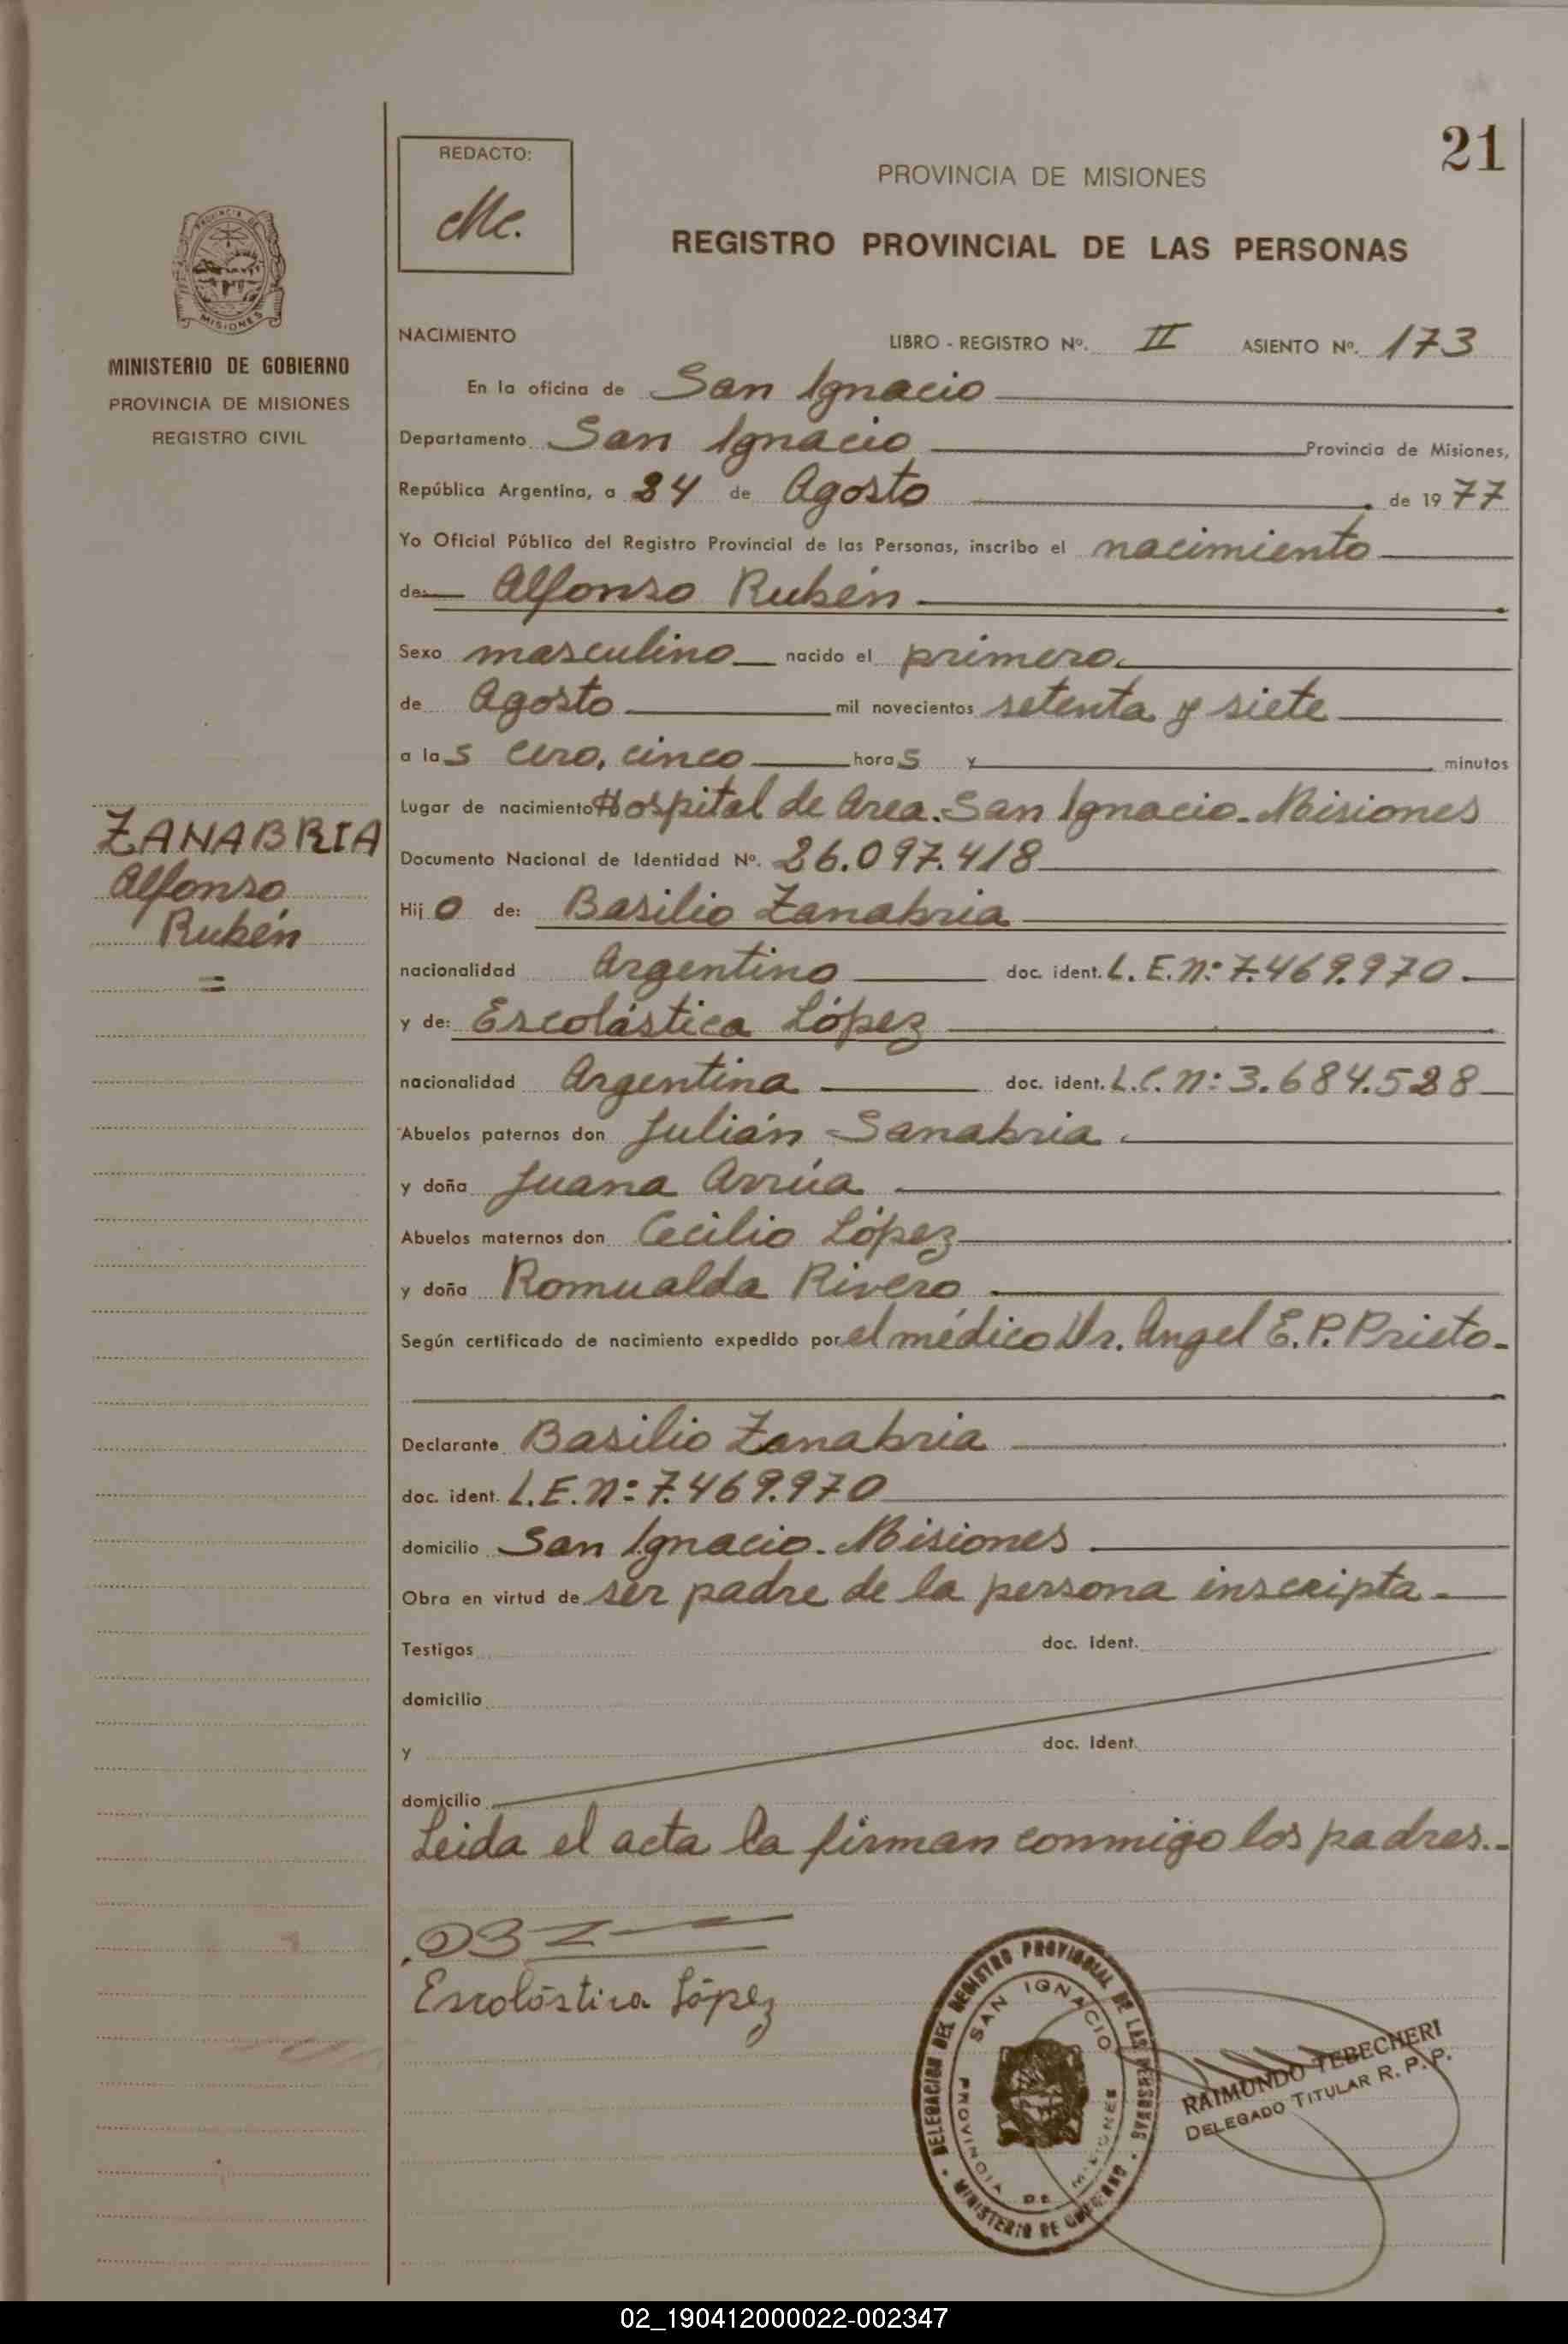 21
REDACTO:
Mc.
PROVINCIA DE MISIONES
REGISTRO PROVINCIAL DE LAS PERSONAS
MISIONES
MINISTERIO DE GOBIERNO
PROVINCIA DE MISIONES
REGISTRO CIVIL
NACIMIENTO LIBRO - REGISTRO Nº. II ASIENTO Nº. 173
En la oficina de San Ignacio
Departamento San Ignacio Provincia de Misiones,
República Argentina, a 24 de Agosto de 1977
Yo Oficial Público del Registro Provincial de las Personas, inscribo el nacimiento
de: Alfonso Rubén
Sexo masculino nacido el primero.
de Agosto mil novecientos setenta y siete
a las cero, cinco horas y minutos
Lugar de nacimiento Hospital de Area. San Ignacio. Misiones
ZANABRIA
Alfonso
Rubén
=
Documento Nacional de Identidad Nº. 26.097.418
Hijo de: Basilio Zanabria
nacionalidad Argentino doc. ident. L.E.Nº 7.469.970.
y de: Escolástica López
nacionalidad Argentina doc. ident. L.C. Nº: 3.684.528
Abuelos paternos don Julián Sanabria.
y doña Juana Arrúa
Abuelos maternos don Cecilio López
y doña Romualda Rivero
Según certificado de nacimiento expedido por el médico Dr. Angel E.P. Prieto.
Declarante Basilio Zanabria
doc. ident. L.E.Nº 7.469.970
domicilio San Ignacio. Misiones
Obra en virtud de ser padre de la persona inscripta.
Testigos doc. ident.
domicilio
y doc. ident.
domicilio
Leida el acta la firman conmigo los padres.
Escolástica López
DELEGACION DEL REGISTRO PROVINCIAL DE LAS PERSONAS
SAN IGNACIO
PROVINCIA DE MISIONES
MINISTERIO DE GOBIERNO
RAIMUNDO TEBECHERI
DELEGADO TITULAR R. P. P.
02_190412000022-002347